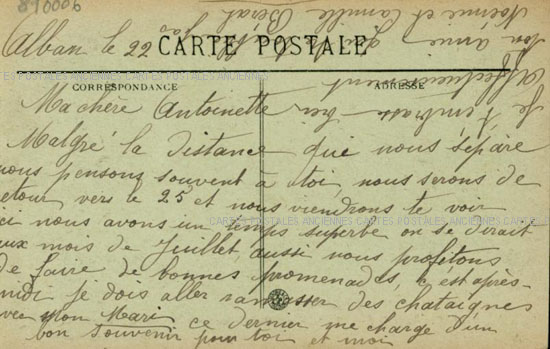 810006
Alban le 22
CARTE POSTALE
CARTES POSTALES ANCIENNES
CORRESPONDANCE
ADRESSE
Ma chère Antoinette
Malgré la distance que nous sépare
nous pensons souvent à toi, nous serons de
retour vers le 25 et nous viendrons te voir
ici nous avons un temps superbe on se dirait
CARTES POSTALES ANCIENNES CARTES POSTALES ANCIENNES CARTES
aux mois de Juillet aussi nous profitons
de faire de bonnes promenades, c'est après-
midi je dois aller ramasser des chataignes
avec mon Mari ce dernier me charge d'un
bon souvenir pour toi et moi
je t'embrasse bien
Affectueusement
Ton amie
Noémie et Camille Berat